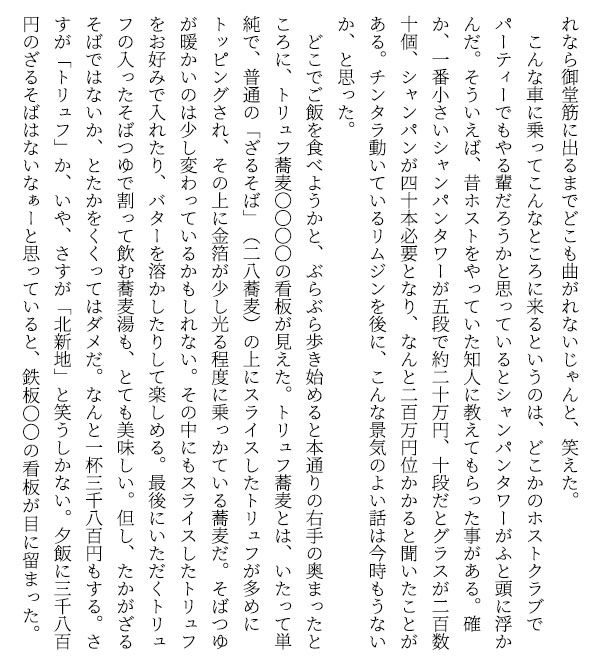 れなら御堂筋に出るまでどこも曲がれないじゃんと、笑えた。
　こんな車に乗ってこんなところに来るというのは、どこかのホストクラブで
パーティーでもやる輩だろうかと思っているとシャンパンタワーがふと頭に浮か
んだ。そういえば、昔ホストをやっていた知人に教えてもらった事がある。確
か、一番小さいシャンパンタワーが五段で約二十万円、十段だとグラスが二百数
十個、シャンパンが四十本必要となり、なんと二百万円位かかると聞いたことが
ある。チンタラ動いているリムジンを後に、こんな景気のよい話は今時もうない
か、と思った。
　どこでご飯を食べようかと、ぶらぶら歩き始めると本通りの右手の奥まったと
ころに、トリュフ蕎麦〇〇〇〇の看板が見えた。トリュフ蕎麦とは、いたって単
純で、普通の「ざるそば」（二八蕎麦）の上にスライスしたトリュフが多めに
トッピングされ、その上に金箔が少し光る程度に乗っかている蕎麦だ。そばつゆ
が暖かいのは少し変わっているかもしれない。その中にもスライスしたトリュフ
をお好みで入れたり、バターを溶かしたりして楽しめる。最後にいただくトリュ
フの入ったそばつゆで割って飲む蕎麦湯も、とても美味しい。但し、たかがざる
そばではないか、とたかをくくってはダメだ。なんと一杯三千八百円もする。さ
すが「トリュフ」か、いや、さすが「北新地」と笑うしかない。夕飯に三千八百
円のざるそばはないなぁーと思っていると、鉄板〇〇の看板が目に留まった。